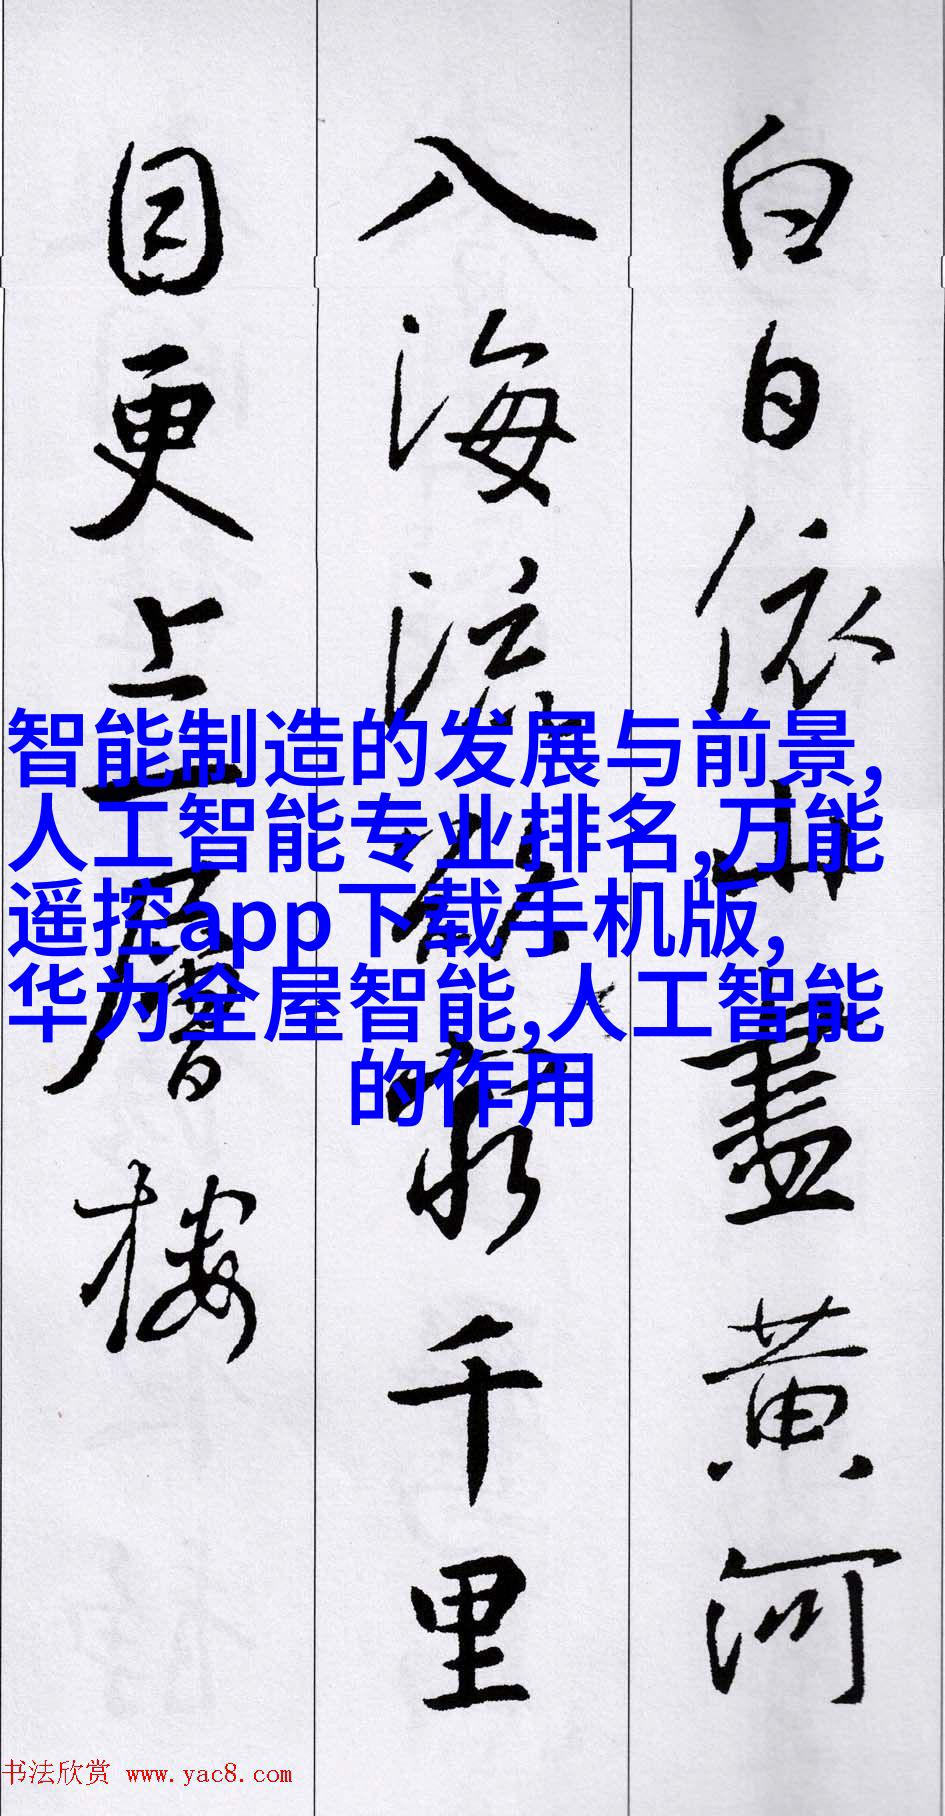 白日依山盡黄河
入海流欲窮千里
目更上一層樓
智能制造的发展与前景,
人工智能专业排名,万能
遥控app下载手机版,
华为全屋智能,人工智能
的作用
书法欣赏 www.yac8.com